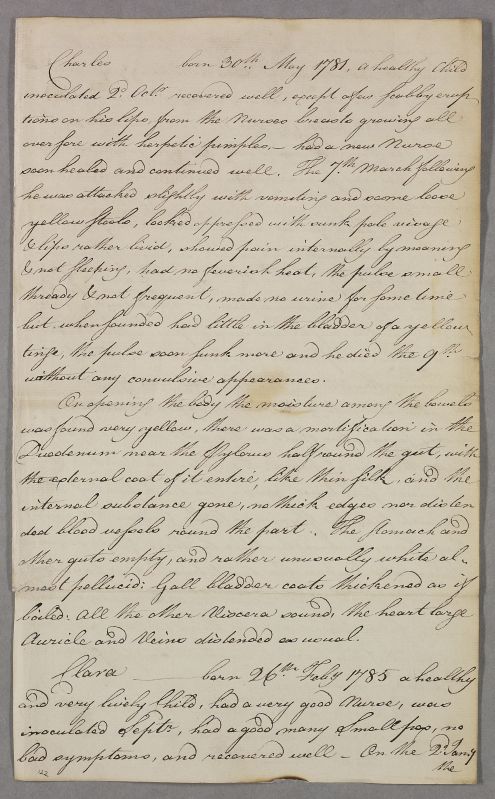 Charles born 30th May 1781, a healthy Child
inoculated Do. Octr. recovered well, except a few scabby erup
tions on his lips, from the Nurses breasts growing all
over sore with herpetic pimples, – had a new Nurse
soon healed and continued well. The 7th March following
he was attacked slightly with vomiting and some loose
yellow stools, looked oppressed with sunk pale visage
& lips rather livid, shewed pain internally by moaning
& not sleeping, had no feverish heat, the pulse small
thready & not frequent, made no urine for some time
but when sounded had little in the bladder of a yellow
tinge, the pulse soon sunk more and he died the 9th
without any convulsive appearances.
On opening the body the moisture among the bowels
was found very yellow, there was a mortification in the
Duodenum near the Pylorus half round the gut, with
the external coat of it entire, like thin silk, and the
internal substance gone, no thick edges nor disten
ded blood vessels round the part. The stomach and
other guts empty, and rather unusually white al-
most pellucid: Gall bladder coats thickened as if
boiled. All the other Viscera sound, the heart large
Auricle and Veins distended as usual.
Clara born 26th Feby 1785 a healthy
and very lively Child, had a very good Nurse, was
inoculated Septr., had a good many Small pox, no
bad symptoms, and recovered well – On the 2d Jany
the